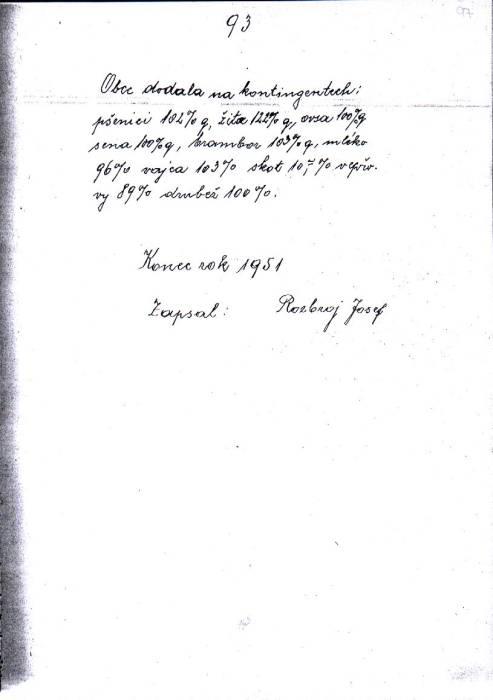 93
97
Obec dodala na kontingentech:
pšenici 102% q, žita 122% q, ovsa 100% q
sena 100% q, brambor 103% q, mléko
96% vajca 103% skot % vepřo-
vy 89% drubež 100%.
Konec rok 1951
Zapsal: Rozbroj Josef